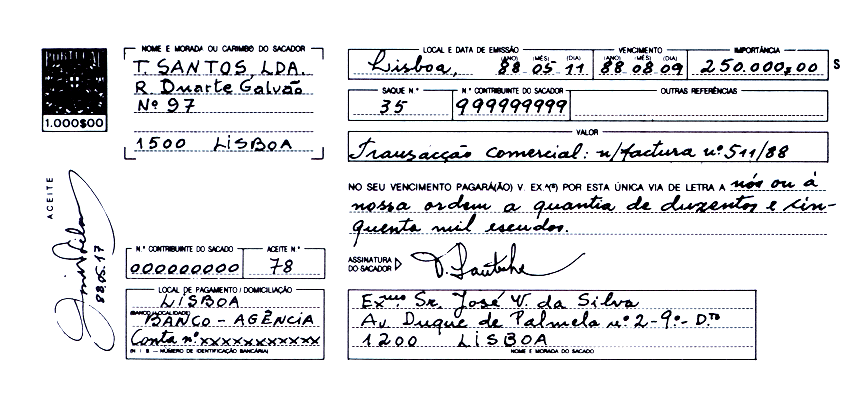 PORTUGAL
1.000$00
NOME E MORADA OU CARIMBO DO SACADOR
T. SANTOS, LDA.
R. Duarte Galvão
Nº 97
1500 LISBOA
LOCAL E DATA DE EMISSÃO
(ANO) (MÊS) (DIA)
Lisboa, 88 05 11
VENCIMENTO
(ANO) (MÊS) (DIA)
88 08 09
IMPORTÂNCIA
250.000,00 $
SAQUE N.º
35
N.º CONTRIBUINTE DO SACADOR
999999999
OUTRAS REFERÊNCIAS
VALOR
Transacção comercial: n/factura nº 511/88
NO SEU VENCIMENTO PAGARÁ(ÃO) V. EX.ª(S) POR ESTA ÚNICA VIA DE LETRA A nós ou à
nossa ordem a quantia de duzentos e cin-
quenta mil escudos.
ACEITE
88.05.17
N.º CONTRIBUINTE DO SACADO
000000000
ACEITE N.º
78
ASSINATURA
DO SACADOR
LOCAL DE PAGAMENTO / DOMICILIAÇÃO
LISBOA
(BANCO/LOCALIDADE)
BANCO - AGÊNCIA
Conta nº xxxxxxxxxxx
(N I B - NÚMERO DE IDENTIFICAÇÃO BANCÁRIA)
Exmo Sr. José V. da Silva
Av. Duque de Palmela nº 2-9º- Dto
1200 LISBOA
NOME E MORADA DO SACADO